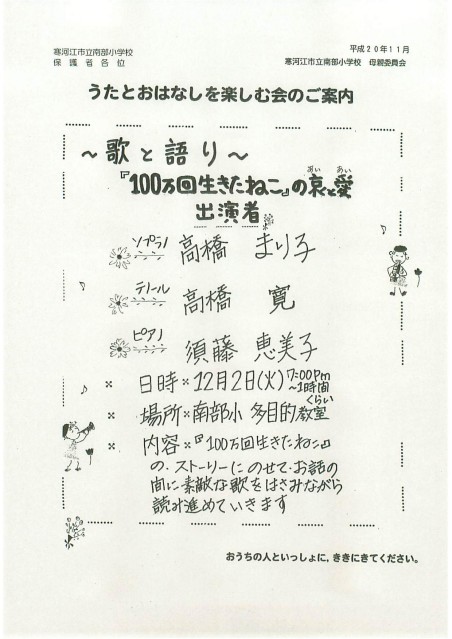 平成20年11月
寒河江市立南部小学校
保護者各位
寒河江市立南部小学校 母親委員会
うたとおはなしを楽しむ会のご案内
～歌と語り～
あい あい
『100万回生きたねこ』の哀と愛
出演者
ソプラノ 高橋 まり子
テノール 高橋 寛
ピアノ 須藤 恵美子
日時 × 12月2日(火) 7:00pm
～1時間
くらい
場所 × 南部小 多目的教室
内容 × 『100万回生きたねこ』
の、ストーリーにのせて、お話の
間に素敵な歌をはさみながら
読み進めていきます
おうちの人といっしょに，ききにきてください。